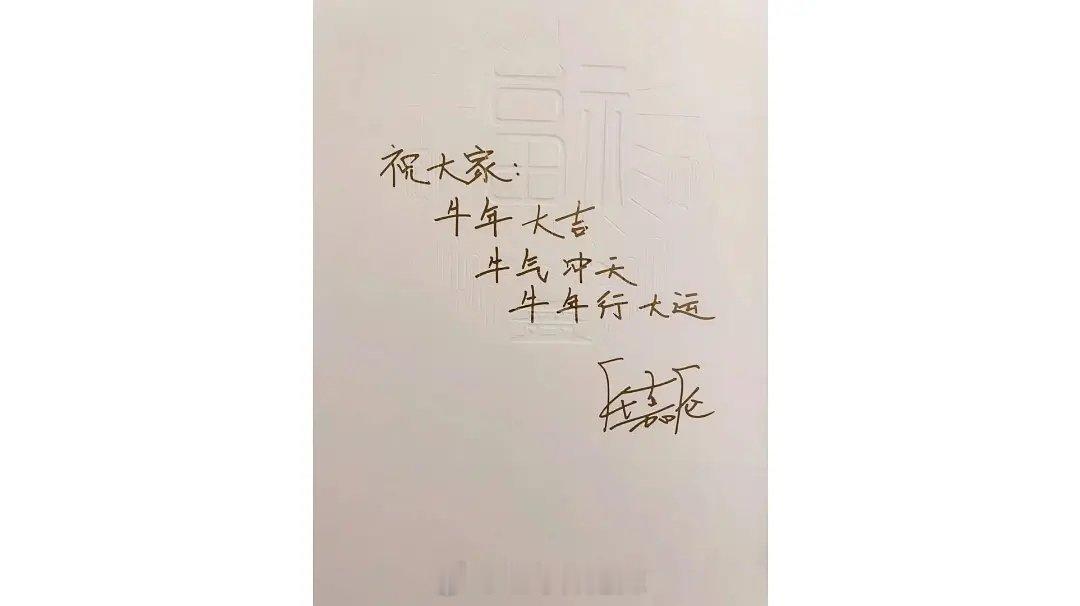 祝大家：
牛年大吉
牛气冲天
牛年行大运